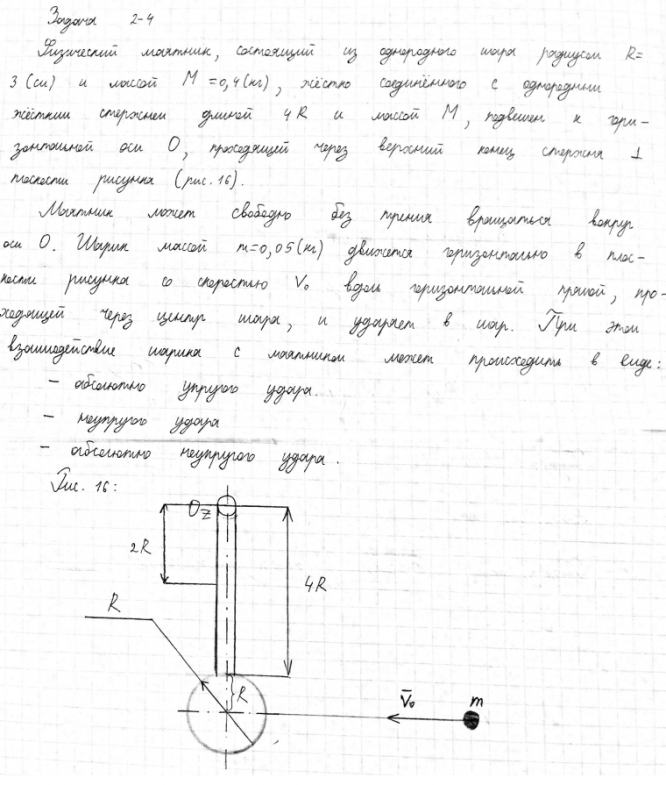 Задача 2-4
Физический маятник, состоящий из однородного шара радиусом R=
3 (см) и массой M = 0,4(кг), жёстко соединённого с однородным
жёстким стержнем длиной 4R и массой M, подвешен к гори-
зонтальной оси O, проходящей через верхний конец стержня ⊥
плоскости рисунка (рис. 16).
Маятник может свободно без трения вращаться вокруг
оси O. Шарик массой m=0,05(кг) движется горизонтально в плос-
кости рисунка со скоростью V₀ вдоль горизонтальной прямой, про-
ходящей через центр шара, и ударяет в шар. При этом
взаимодействие шарика с маятником может происходить в виде:
- абсолютно упругого удара.
- неупругого удара
- абсолютно неупругого удара.
Рис. 16:
Oz
2R
4R
R
R
V̄₀
m